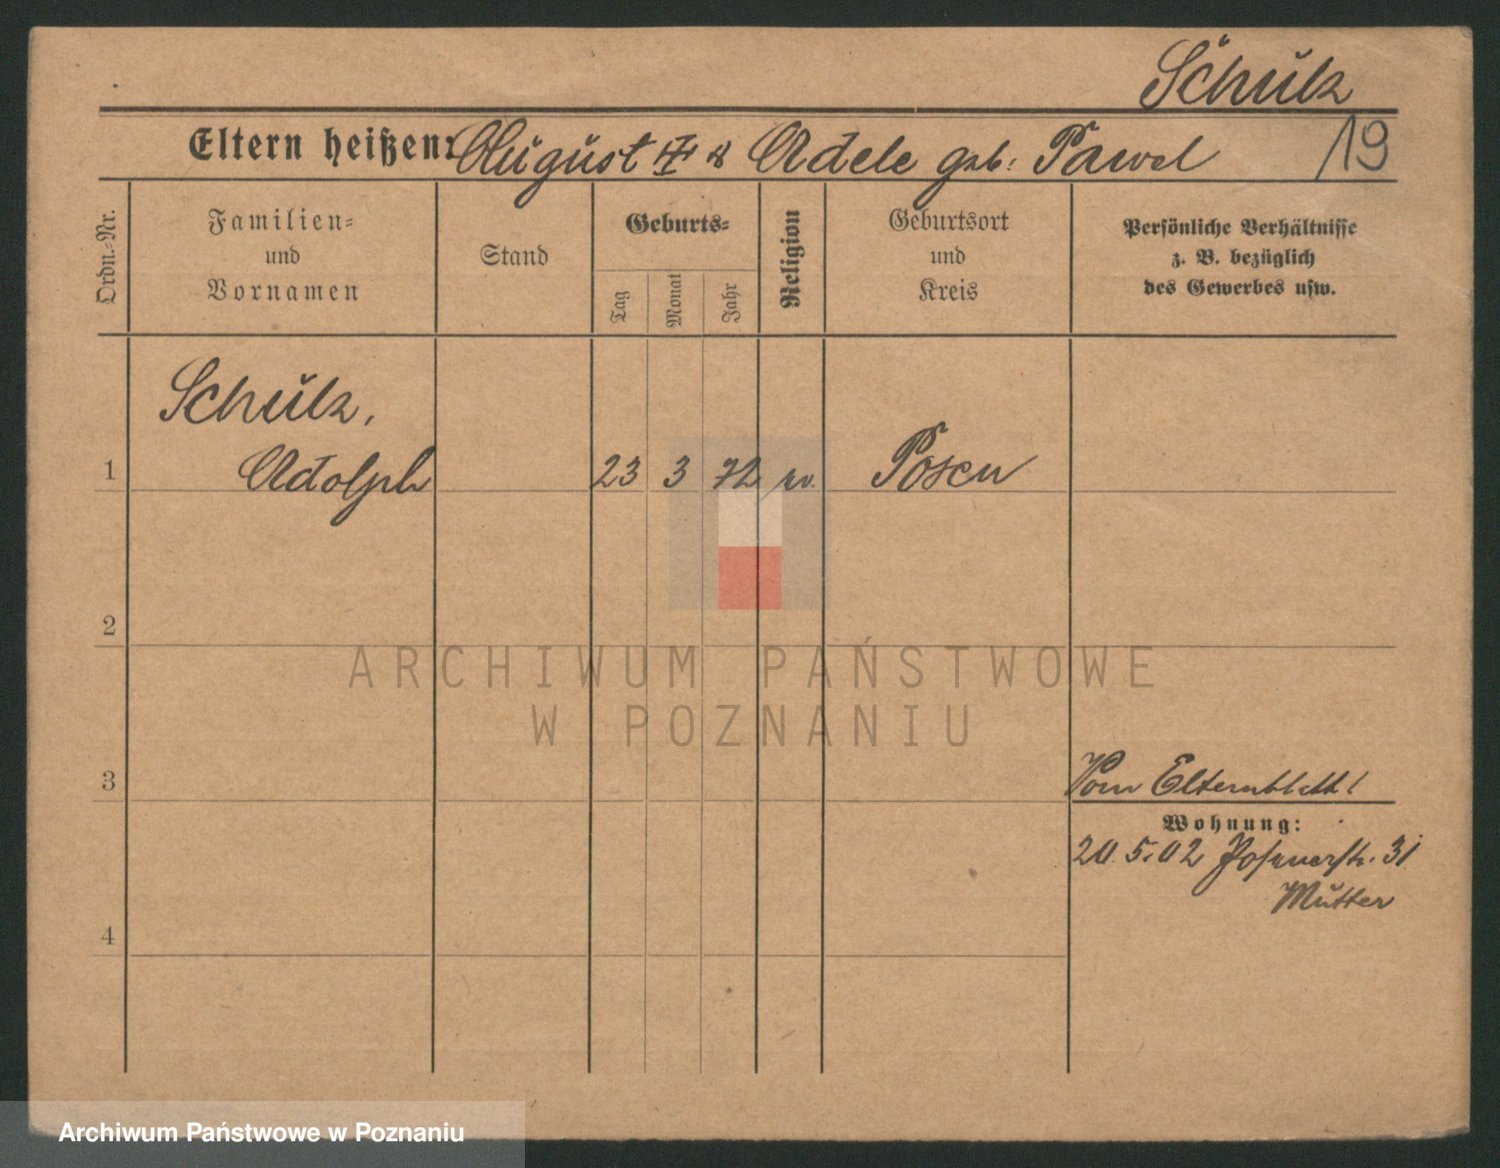 Schulz
Eltern heißen: August II & Adele geb. Pawel
19
Ordn.-Nr.
Familien=
und
Vornamen
Stand
Geburts=
Tag
Monat
Jahr
Religion
Geburtsort
und
Kreis
Persönliche Verhältnisse
z. B. bezüglich
des Gewerbes usw.
Schulz,
1 Adolph 23 3 72 ev. Posen
2
ARCHIWUM PAŃSTWOWE
W POZNANIU
3 Vom Elternblatt!
Wohnung:
20.5.02 Posenerstr. 31
Mutter
4
Archiwum Państwowe w Poznaniu